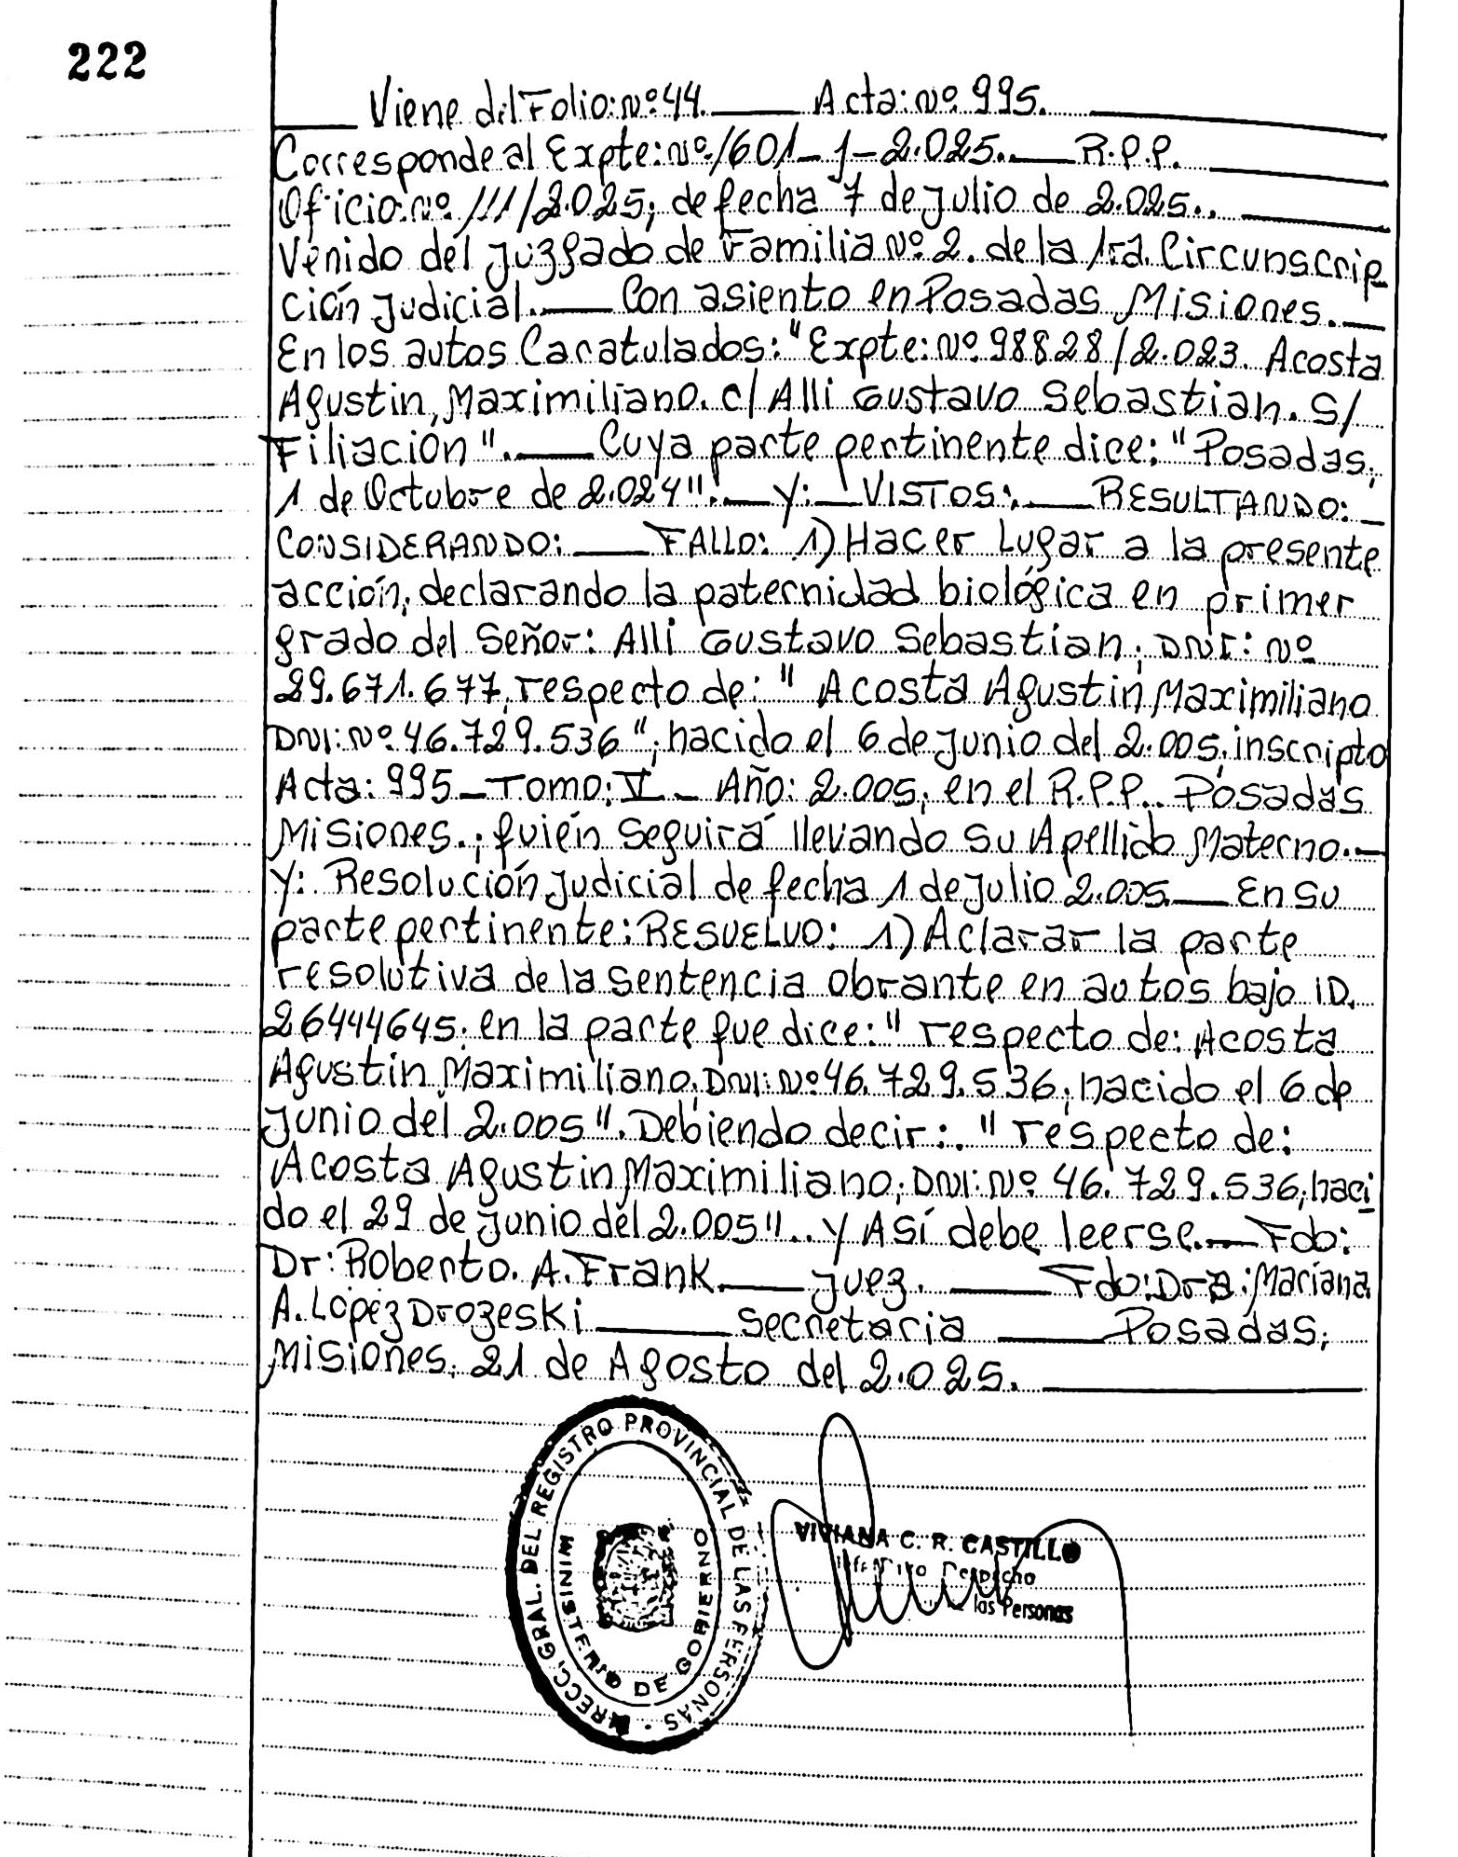 222
Viene del Folio: Nº 44. Acta: Nº 995.
Corresponde al Expte: Nº 1601-J-2.025. R.P.P.
Oficio: Nº 111/2.025; de fecha 7 de Julio de 2.025..
Venido del Juzgado de Familia Nº 2. de la 1ra. Circunscrip
ción Judicial. Con asiento en Posadas Misiones.
En los autos Caratulados: "Expte: Nº 98828/2.023. Acosta
Agustin, Maximiliano. c/ Alli Gustavo Sebastian. S/
Filiación". Cuya parte pertinente dice: "Posadas,
1 de Octubre de 2.024". Y: VISTOS: RESULTANDO:
CONSIDERANDO: FALLO: 1) Hacer Lugar a la presente
acción, declarando la paternidad biológica en primer
grado del Señor: Alli Gustavo Sebastian; DNI: Nº
29.671.677, respecto de: "Acosta Agustin Maximiliano
DNI: Nº 46.729.536"; nacido el 6 de Junio del 2.005, inscripto
Acta: 995 - Tomo: V - Año: 2.005; en el R.P.P.. Posadas
Misiones.; quién seguirá llevando su Apellido Materno.
Y: Resolución Judicial de fecha 1 de Julio 2.005. En su
parte pertinente: RESUELVO: 1) Aclarar la parte
resolutiva de la sentencia obrante en autos bajo ID.
26444645. en la parte que dice: "respecto de: Acosta
Agustin Maximiliano, DNI: Nº 46.729.536; nacido el 6 de
Junio del 2.005". Debiendo decir: "respecto de:
Acosta Agustin Maximiliano; DNI: Nº 46.729.536, naci
do el 29 de Junio del 2.005".. Y Así debe leerse. Fdo:
Dr: Roberto. A. Frank. Juez. Fdo: Dra: Mariana
A. Lopez Drozeski Secretaria Posadas,
Misiones, 21 de Agosto del 2.025.
DIRECC. GRAL. DEL REGISTRO PROVINCIAL DE LAS PERSONAS
MINISTERIO DE GOBIERNO
VIVIANA C. R. CASTILLO
Despacho
las Personas